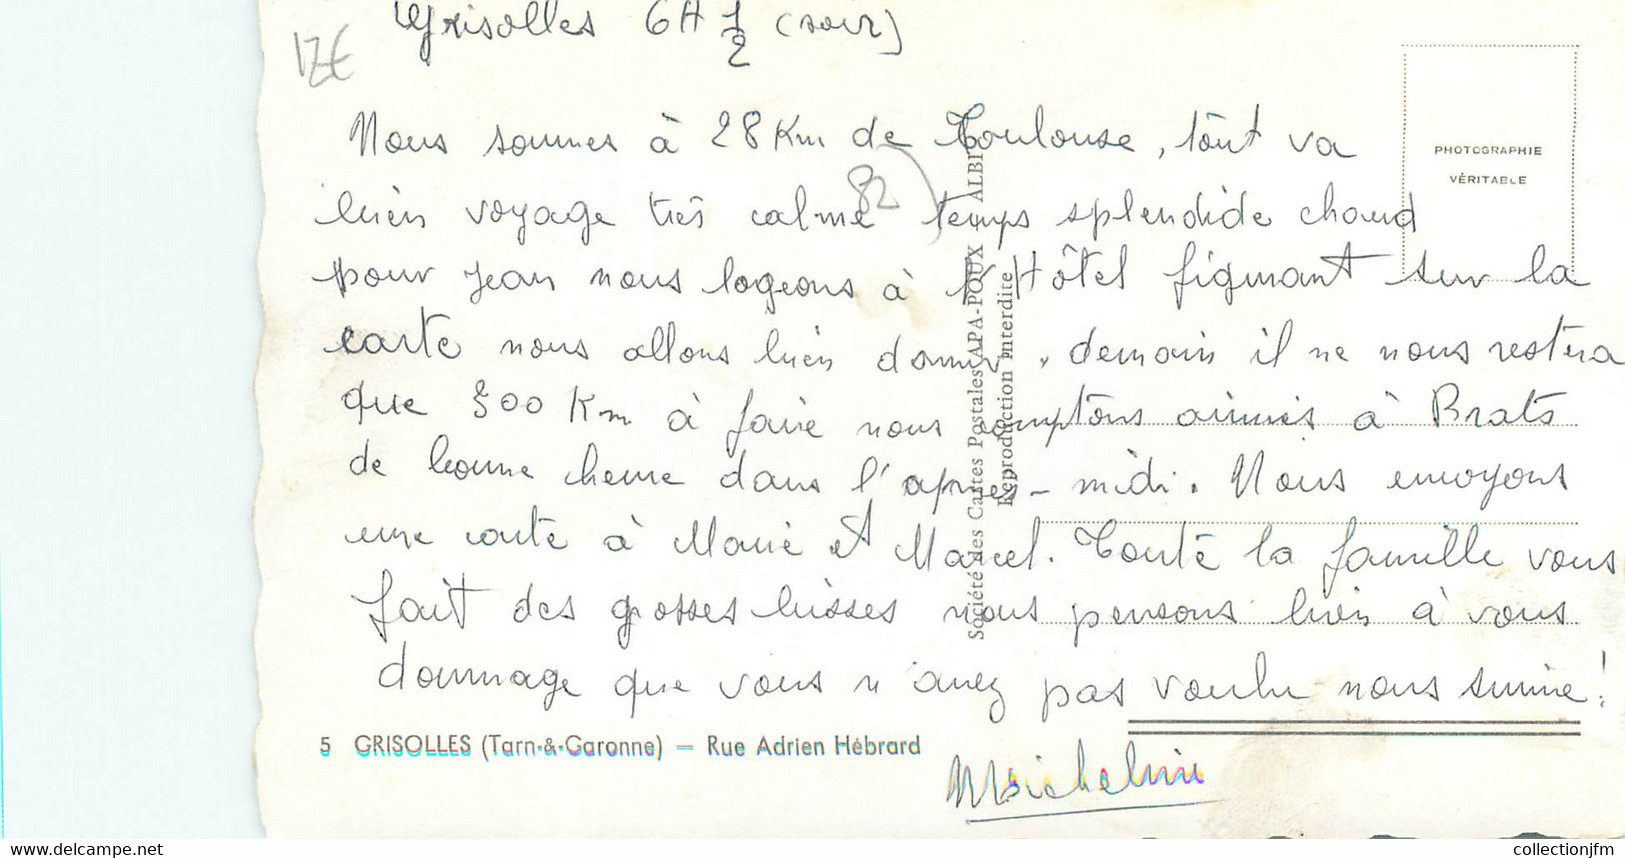 Grisolles 6H 1/2 (soir)
12€
Nous sommes à 28 Km de Toulouse, tout va
bien voyage très calme temps splendide chaud
82
pour Jean nous logeons à l'Hôtel figurant sur la
carte nous allons bien dormir, demain il ne nous restera
que 300 Km à faire nous comptons arriver à Prats
de bonne heure dans l'après-midi. Nous envoyons
une carte à Marie et Marcel. Toute la famille vous
fait des grosses bisses nous pensons bien à vous
dommage que vous n'avez pas voulu nous suivre!
Micheline
5 GRISOLLES (Tarn-&-Garonne) — Rue Adrien Hébrard
Société des Cartes Postales APA-POUX ALBI
Reproduction interdite
PHOTOGRAPHIE
VÉRITABLE
www.delcampe.net
collectionjfm